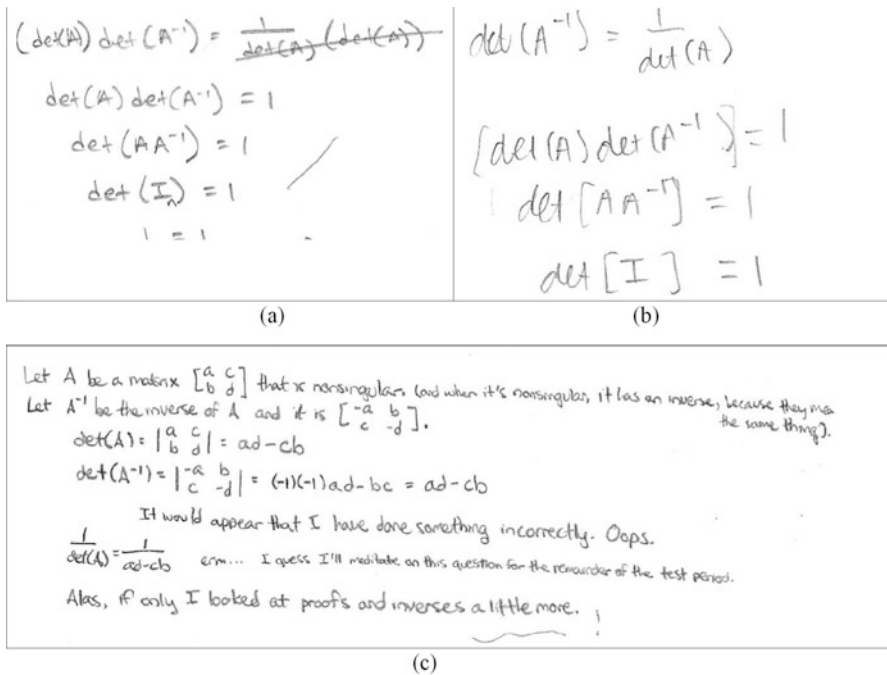 (det(A)) det(A⁻¹) = 1/det(A) (det(A))
det(A) det(A⁻¹) = 1
det(AA⁻¹) = 1
det(Iₙ) = 1
1 = 1
(a)
det(A⁻¹) = 1/det(A)
[det(A) det(A⁻¹)] = 1
det[AA⁻¹] = 1
det[I] = 1
(b)
Let A be a matrix [a c; b d] that is nonsingular. (and when it's nonsingular, it has an inverse, because they mean
the same thing).
Let A⁻¹ be the inverse of A and it is [-a b; c -d].
det(A) = |a c; b d| = ad-cb
det(A⁻¹) = |-a b; c -d| = (-1)(-1)ad-bc = ad-cb
It would appear that I have done something incorrectly. Oops.
1/det(A) = 1/ad-cb erm... I guess I'll meditate on this question for the remainder of the test period.
Alas, if only I looked at proofs and inverses a little more. !
(c)